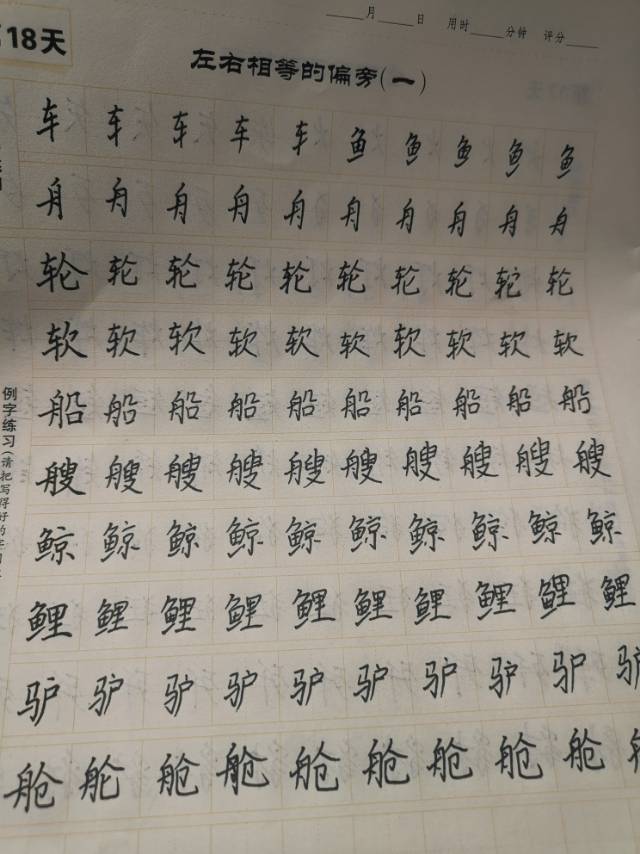 ____月____日 用时____分钟 评分____
第18天
左右相等的偏旁(一)
车 车 车 车 车 鱼 鱼 鱼 鱼 鱼
舟 舟 舟 舟 舟 舟 舟 舟 舟 舟
轮 轮 轮 轮 轮 轮 轮 轮 轮 轮
软 软 软 软 软 软 软 软 软 软
船 船 船 船 船 船 船 船 船 船
艘 艘 艘 艘 艘 艘 艘 艘 艘 艘
鲸 鲸 鲸 鲸 鲸 鲸 鲸 鲸 鲸 鲸
鲤 鲤 鲤 鲤 鲤 鲤 鲤 鲤 鲤 鲤
驴 驴 驴 驴 驴 驴 驴 驴 驴 驴
舱 舱 舱 舱 舱 舱 舱 舱 舱
例字练习(请把写得好的字